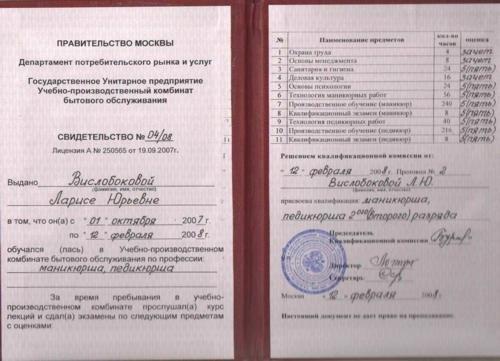 ПРАВИТЕЛЬСТВО МОСКВЫ
Департамент потребительского рынка и услуг
Государственное Унитарное предприятие
Учебно-производственный комбинат
бытового обслуживания
СВИДЕТЕЛЬСТВО № 04/08
Лицензия А № 250565 от 19.09.2007г.
Выдано Вислобоковой
(фамилия, имя, отчество)
Ларисе Юрьевне
в том, что он(а) с "01" октября 2007г.
по "12" февраля 2008г.
обучался (лась) в Учебно-производственном
комбинате бытового обслуживания по профессии:
маникюрша, педикюрша
За время пребывания в учебно-
производственном комбинате прослушал(а) курс
лекций и сдал(а) экзамены по следующим предметам
с оценками:
№ Наименование предметов кол-во часов оценка
1 Охрана труда 4 зачет
2 Основы менеджмента 8 зачет
3 Санитария и гигиена 24 5(пять)
4 Деловая культура 16 зачет
5 Основы психологии 24 5(пять)
6 Технология маникюрных работ 56 5(пять)
7 Производственное обучение (маникюр) 240 5(пять)
8 Квалификационный экзамен (маникюр) 8 5(пять)
9 Технология педикюрных работ 40 5(пять)
10 Производственное обучение (педикюр) 216 5(пять)
11 Квалификационный экзамен (педикюр) 8 5(пять)
Решением квалификационной комиссии от:
"12" февраля 2008г. Протокол № 2
Вислобоковой Л.Ю.
(фамилия, имя, отчество)
присвоена квалификация: маникюрша,
педикюрша 2ого(второго) разряда
Председатель
Квалификационной комиссии
Директор
Секретарь
Москва "12" февраля 2008г.
Настоящий документ не дает право на преподавание.